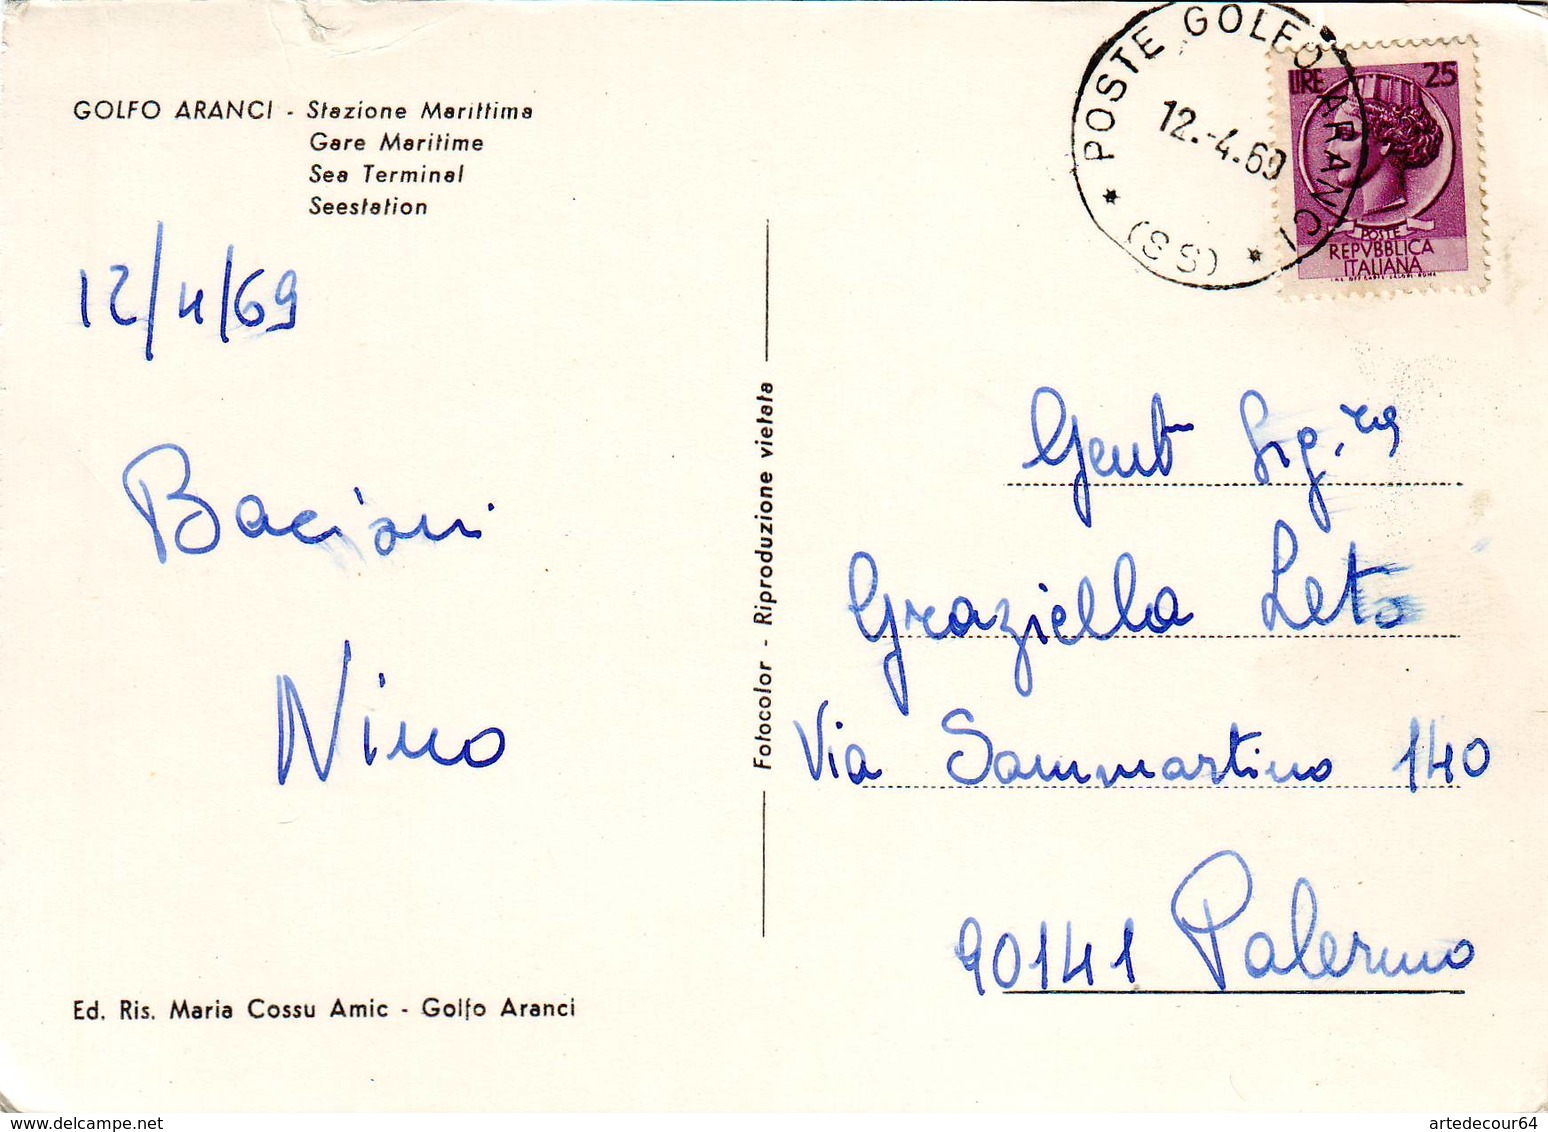 GOLFO ARANCI - Stazione Marittima
Gare Maritime
Sea Terminal
Seestation
12/4/69
Bacioni
Nino
Ed. Ris. Maria Cossu Amic - Golfo Aranci
Fotocolor - Riproduzione vietata
* POSTE GOLFO ARANCI *
(SS)
12.-4.69
LIRE 25
POSTE
REPVBBLICA
ITALIANA
Gent Sig.ra
Graziella Leto
Via Sammartino 140
90141 Palermo
artedecour64